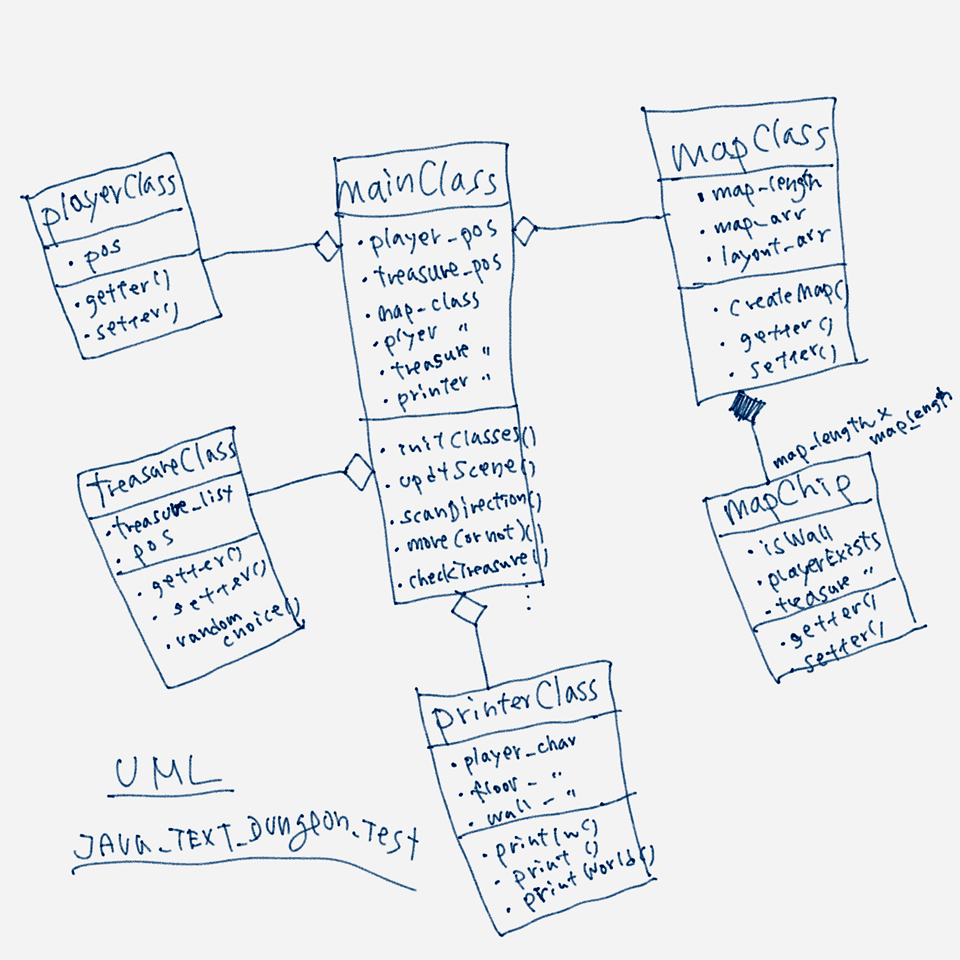 playerClass
・pos
・getter()
・setter()
mainClass
・player_pos
・treasure_pos
・map_class
・plyer 〃
・treasure 〃
・printer 〃
・initClasses()
・updtScene()
・scanDirection()
・move(or not)()
・checkTreasure()
mapClass
・map_length
・map_arr
・layout_arr
・createMap()
・getter()
・setter()
map_length ×
map_length
mapChip
・isWall
・playerExists
・treasure 〃
・getter()
・setter()
treasureClass
・treasure_list
・pos
・getter()
・setter()
・random
choice()
printerClass
・player_char
・floor_ 〃
・wall_ 〃
・println()
・print()
・printWorld()
UML
JAVA_TEXT_Dungeon_Test